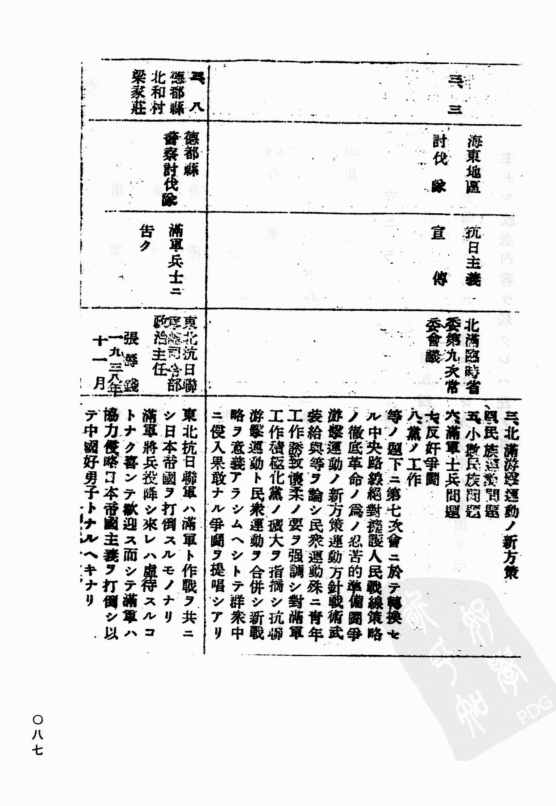 三、三
海東地區
討伐隊
抗日主義
宣傳
北滿臨時省
委第九次常
委會議
三、北滿游擊運動ノ新方策
四、民族運動問題
五、小數民族問題
六、滿軍士兵問題
七、反奸爭鬪
八、黨ノ工作
等ノ題下ニ第七次會ニ於テ轉換セ
ル中央路線絕對擁護人民戰線策略
ノ徹底革命ノ爲ノ忍苦的準備鬪爭
游擊運動ノ新方策運動方針戰術武
裝給與等ヲ論シ民衆運動殊ニ青年
工作誘致懷柔ノ要ヲ强調シ對滿軍
工作積極化黨ノ擴大ヲ指摘シ抗聯
游擊運動ト民衆運動ヲ合併シ新戰
略ヲ意義アラシムヘシトテ群衆中
ニ侵入果敢ナル爭鬪ヲ提唱シアリ
三、八
德都縣
北和村
梁家莊
德都縣
警察討伐隊
滿軍兵士ニ
告ク
東北抗日聯
軍總司令部
政治主任
張壽籛
一九三八年
十一月
東北抗日聯軍ハ滿軍ト作戰ヲ共ニ
シ日本帝國ヲ打倒スルモノナリ
滿軍將兵投降シ來レハ虐待スルコ
トナク喜ンテ歡迎ス而シテ滿軍ハ
協力侵略日本帝國主義ヲ打倒シ以
テ中國好男子トナルヘキナリ
〇八七
PDG